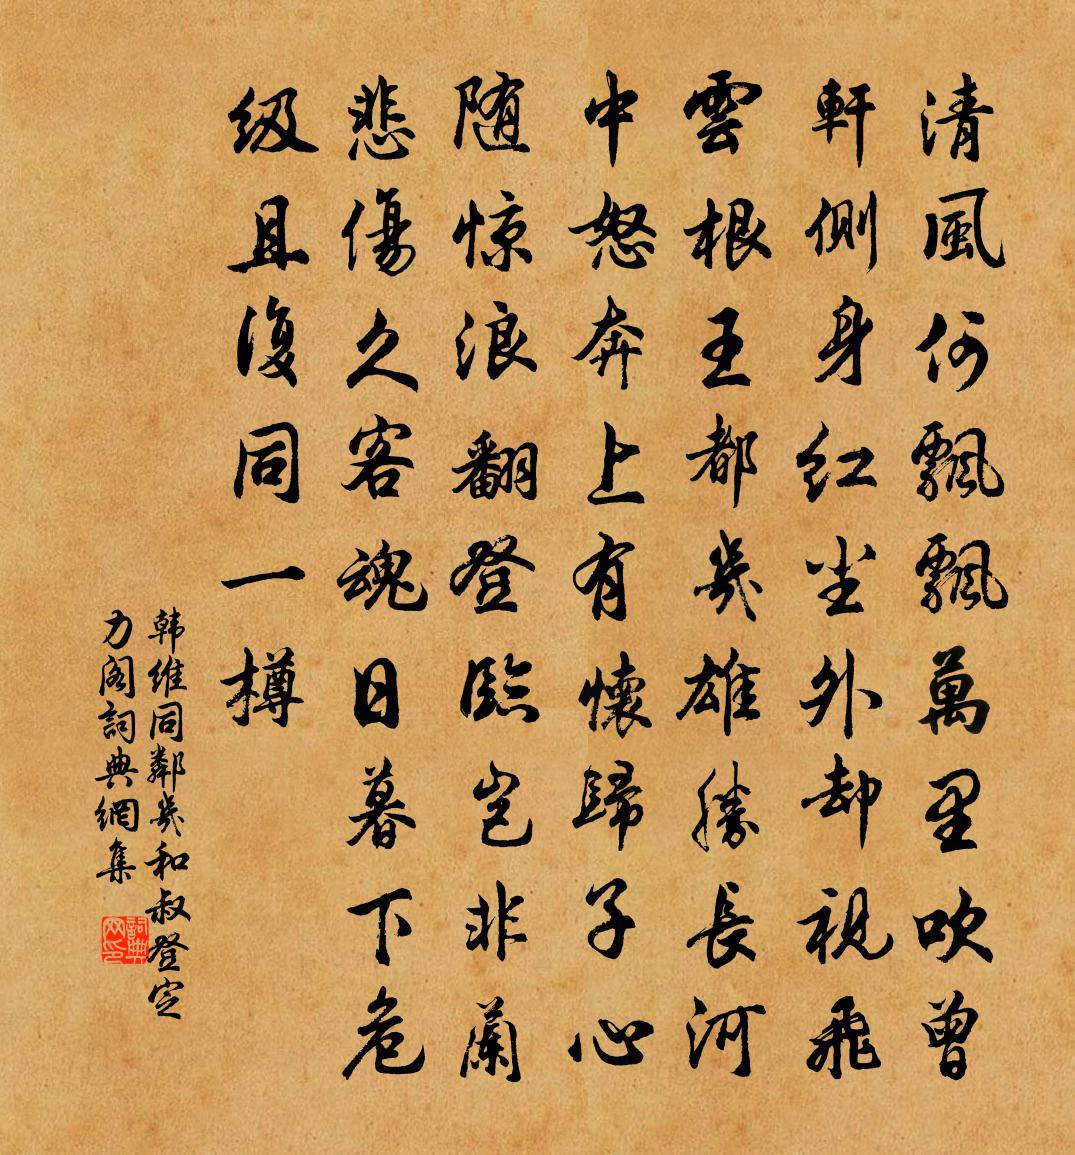 清風何飄飄萬里吹曾
軒側身红尘外却視飛
雲根王都幾雄勝長河
中怒奔上有懷歸子心
随惊浪翻登臨岂非蘭
悲傷久客魂日暮下危
级且復同一樽
韩维同鄰幾和叔登定
力阁詞典網集
詞典网印